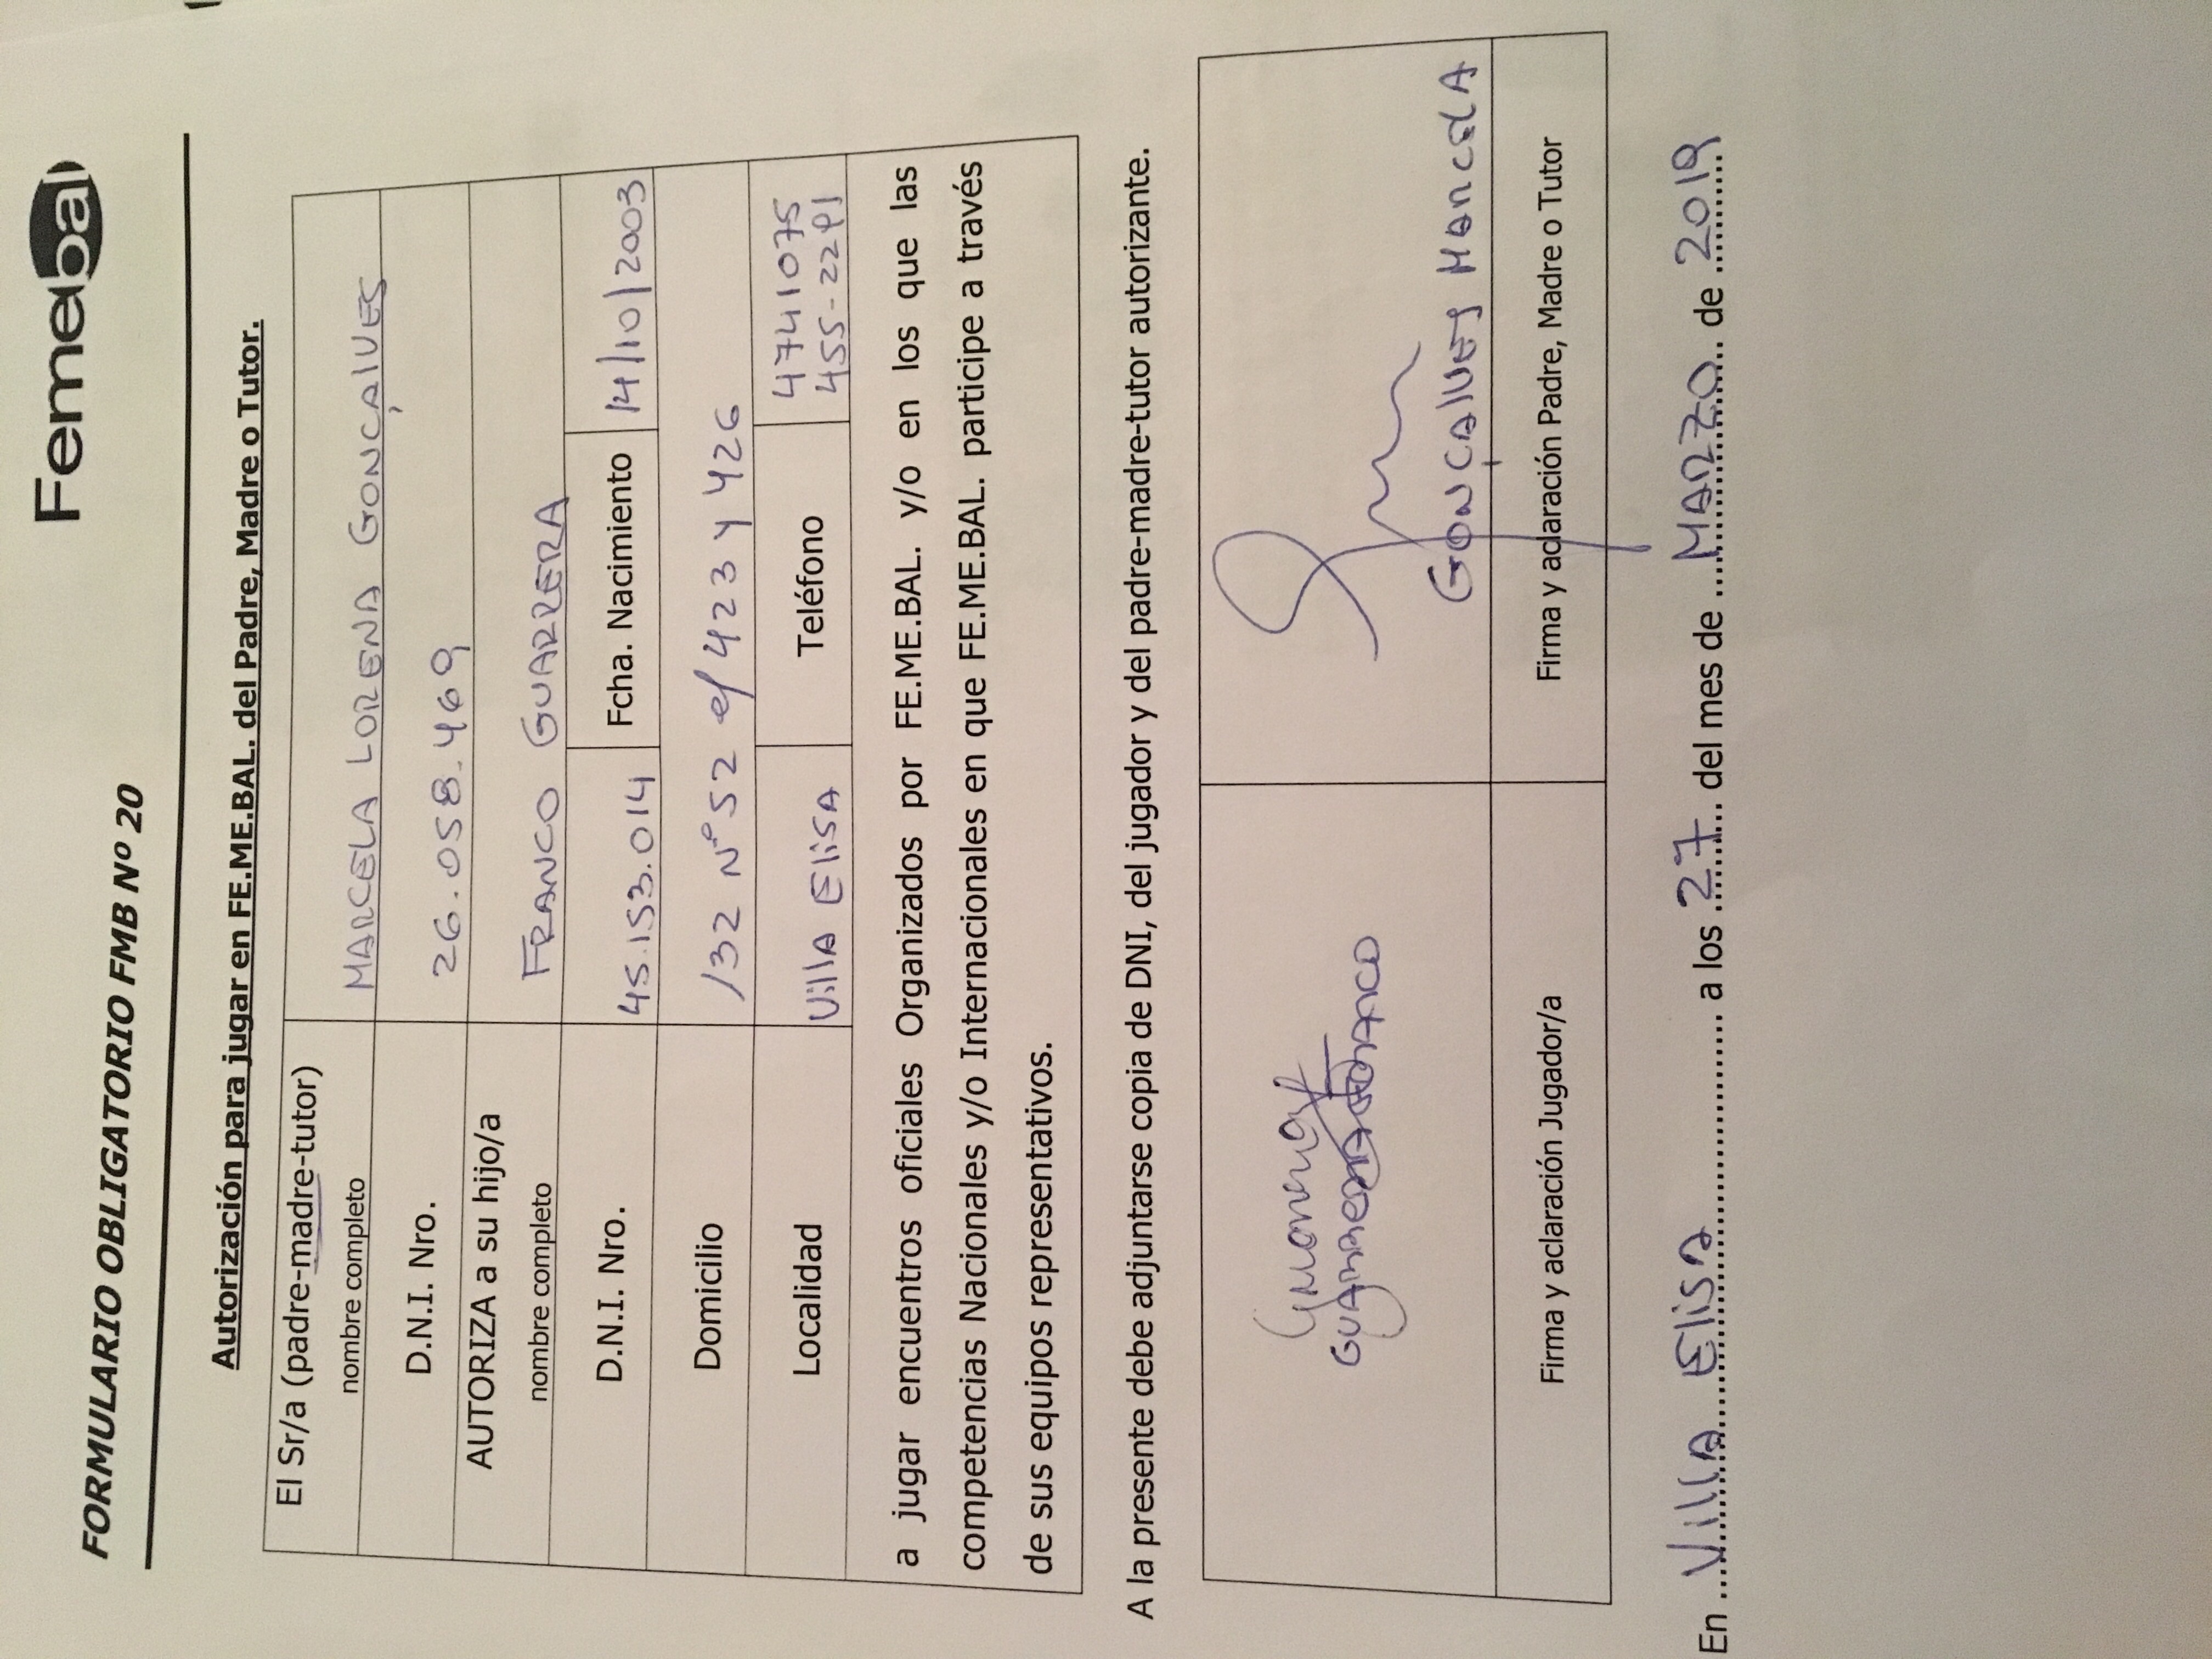 Femebal
FORMULARIO OBLIGATORIO FMB Nº 20
Autorización para jugar en FE.ME.BAL. del Padre, Madre o Tutor.
El Sr/a (padre-madre-tutor)
nombre completo MARCELA LORENA GONÇALVES
D.N.I. Nro. 26.058.469
AUTORIZA a su hijo/a
nombre completo FRANCO GUARRERA
D.N.I. Nro. 45.153.014 Fcha. Nacimiento 14/10/2003
Domicilio 132 Nº 52 e/ 423 y 426
Localidad Villa Elisa Teléfono 4741075
455-2291
a jugar encuentros oficiales Organizados por FE.ME.BAL. y/o en los que las
competencias Nacionales y/o Internacionales en que FE.ME.BAL. participe a través
de sus equipos representativos.
A la presente debe adjuntarse copia de DNI, del jugador y del padre-madre-tutor autorizante.
GONÇALVES MARCELA
Firma y aclaración Jugador/a Firma y aclaración Padre, Madre o Tutor
En Villa Elisa a los 27 del mes de MARZO de 2019